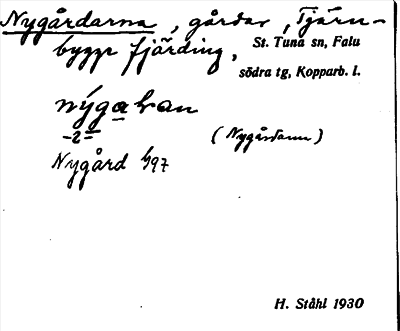 Nygårdarna, gårdar, Tjärn-
bygge fjärding, St. Tuna sn, Falu
södra tg, Kopparb. l.
(Nygårdarna)
Nygård
H. Ståhl 1930